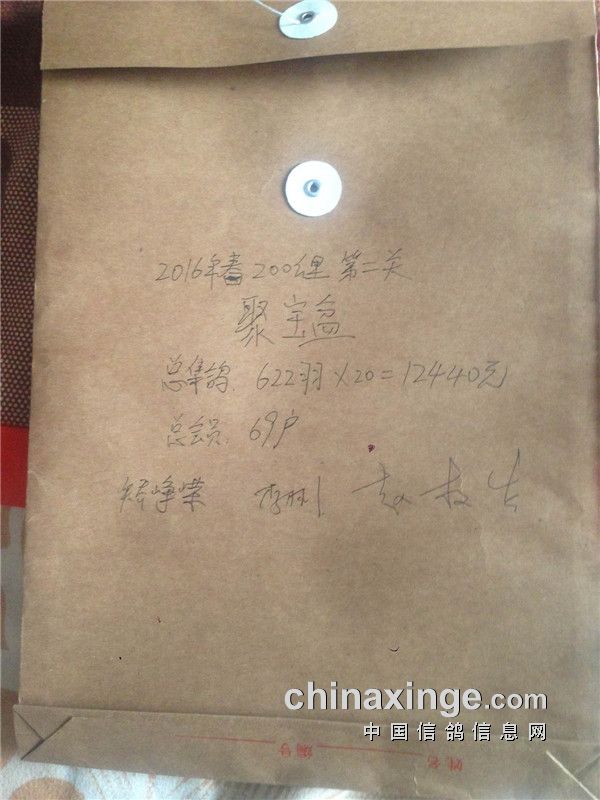 2016年春200公里 第二关
聚宝盆
总集鸽: 622羽×20=12440元
总会员: 69户
峥荣
chinaxinge.com
中国信鸽信息网
编号
姓名